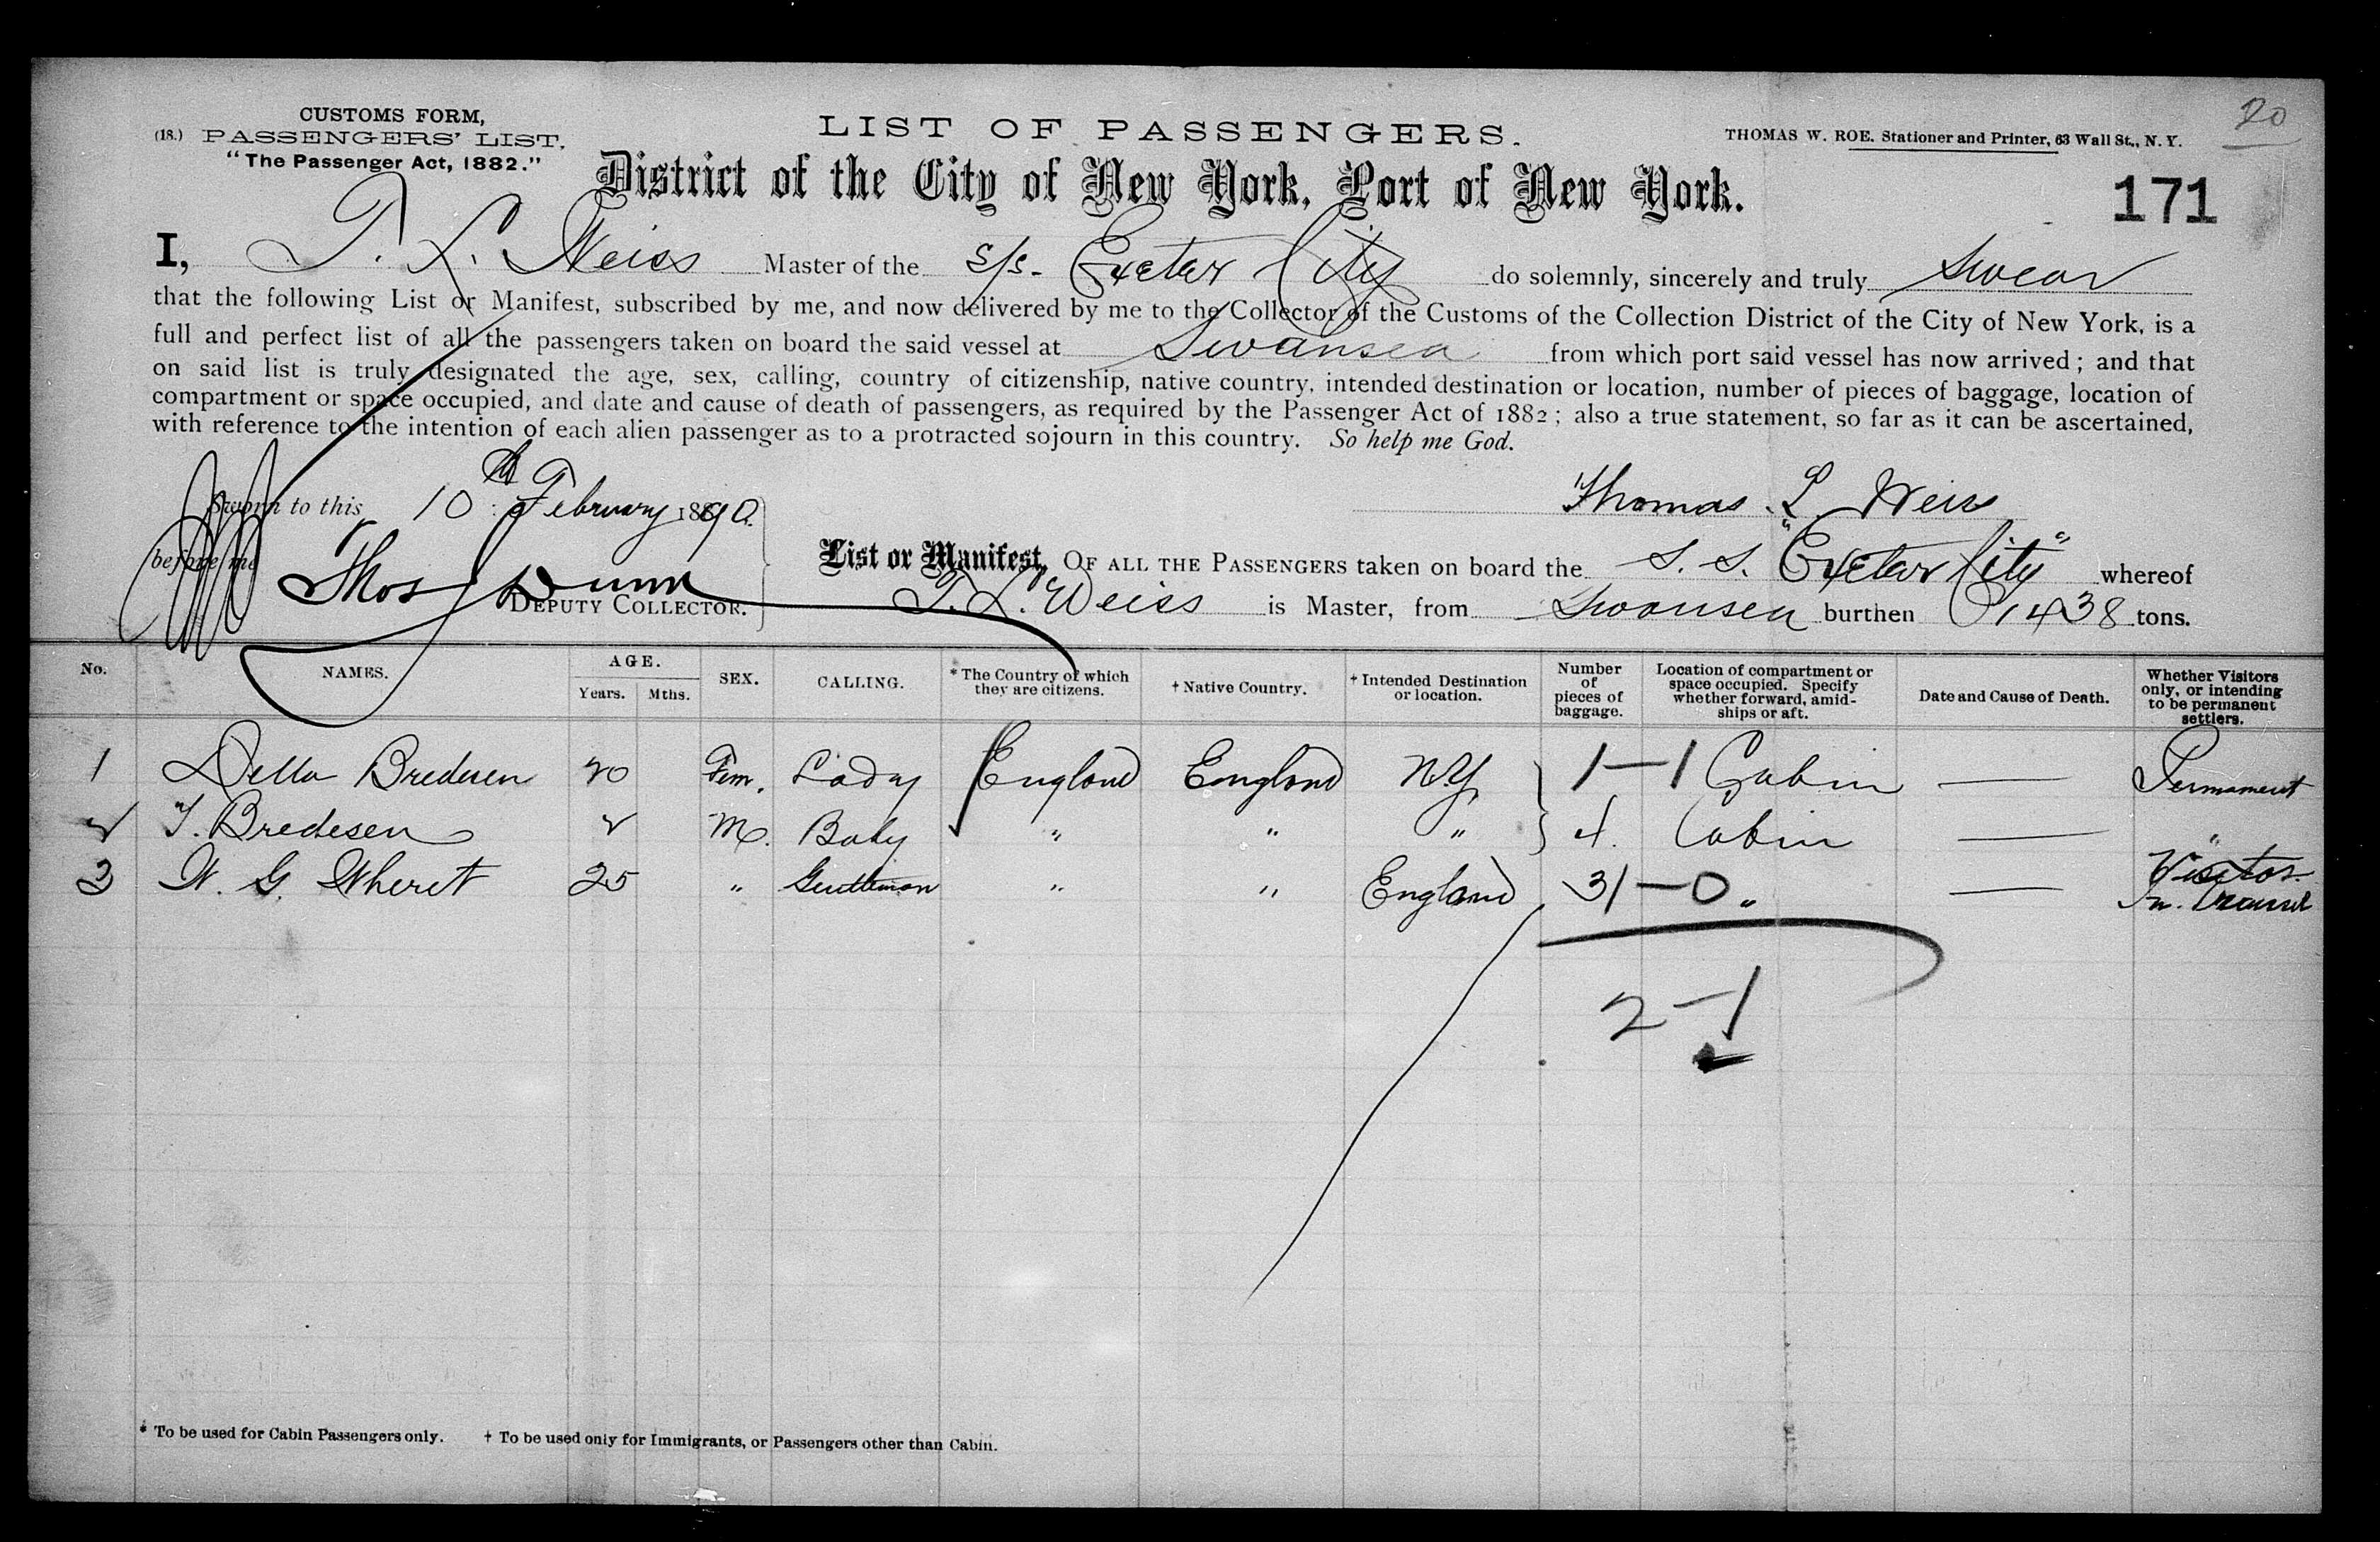 CUSTOMS FORM,
(18.) PASSENGERS' LIST.
"The Passenger Act, 1882."
LIST OF PASSENGERS.
THOMAS W. ROE. Stationer and Printer, 63 Wall St., N. Y.
20
District of the City of New York, Port of New York.
171
I, T. L. Weiss Master of the S/S. Exeter City do solemnly, sincerely and truly swear
that the following List or Manifest, subscribed by me, and now delivered by me to the Collector of the Customs of the Collection District of the City of New York, is a
full and perfect list of all the passengers taken on board the said vessel at Swansea from which port said vessel has now arrived; and that
on said list is truly designated the age, sex, calling, country of citizenship, native country, intended destination or location, number of pieces of baggage, location of
compartment or space occupied, and date and cause of death of passengers, as required by the Passenger Act of 1882; also a true statement, so far as it can be ascertained,
with reference to the intention of each alien passenger as to a protracted sojourn in this country. So help me God.
Sworn to this 10th February 1890.
Thomas L. Weiss
before me
Thos Dunn
DEPUTY COLLECTOR.
List or Manifest, OF ALL THE PASSENGERS taken on board the S. S. "Exeter City" whereof
T. L. Weiss is Master, from Swansea burthen 1438 tons.
No. NAMES. AGE. Years. Mths. SEX. CALLING. * The Country of which they are citizens. † Native Country. † Intended Destination or location. Number of pieces of baggage. Location of compartment or space occupied. Specify whether forward, amidships or aft. Date and Cause of Death. Whether Visitors only, or intending to be permanent settlers.
1 Della Bredesen 20 Fem. Lady England England N.Y. 1—1 Cabin — Permament
2 T. Bredesen 2 M. Baby " " " 4. Cabin — "
3 W. G. Wheret 25 " Gentleman " " England 31—0 " — Visitor
In. Transit
2—1
* To be used for Cabin Passengers only. † To be used only for Immigrants, or Passengers other than Cabin.